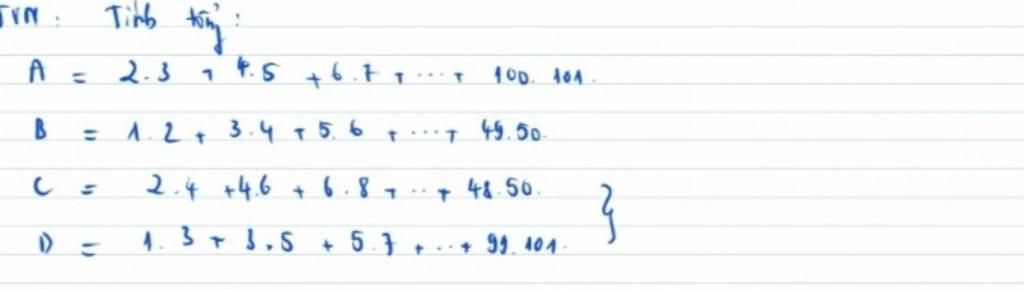 TVN: Tính tổng:
A = 2.3 + 4.5 + 6.7 + ... + 100.101.
B = 1.2 + 3.4 + 5.6 + ... + 49.50.
C = 2.4 + 4.6 + 6.8 + ... + 48.50. }
D = 1.3 + 3.5 + 5.7 + ... + 99.101.